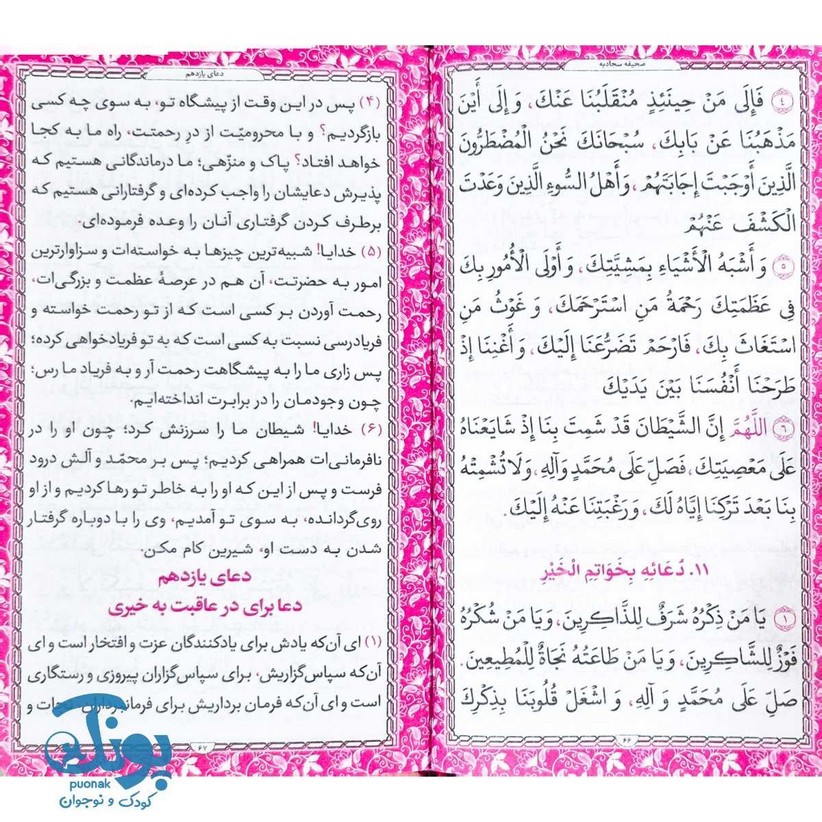 صحیفه سجادیه
٤ فَإِلَى مَنْ حِينَئِذٍ مُنْقَلَبُنَا عَنْكَ، وَ إِلَى أَيْنَ
مَذْهَبُنَا عَنْ بَابِكَ، سُبْحَانَكَ نَحْنُ الْمُضْطَرُّونَ
الَّذِينَ أَوْجَبْتَ إِجَابَتَهُمْ، وَ أَهْلُ السُّوءِ الَّذِينَ وَعَدْتَ
الْكَشْفَ عَنْهُمْ
٥ وَ أَشْبَهُ الْأَشْيَاءِ بِمَشِيَّتِكَ، وَ أَوْلَى الْأُمُورِ بِكَ
فِي عَظَمَتِكَ رَحْمَةُ مَنِ اسْتَرْحَمَكَ، وَ غَوْثُ مَنِ
اسْتَغَاثَ بِكَ، فَارْحَمْ تَضَرُّعَنَا إِلَيْكَ، وَ أَغْنِنَا إِذْ
طَرَحْنَا أَنْفُسَنَا بَيْنَ يَدَيْكَ
٦ اللَّهُمَّ إِنَّ الشَّيْطَانَ قَدْ شَمِتَ بِنَا إِذْ شَايَعْنَاهُ
عَلَى مَعْصِيَتِكَ، فَصَلِّ عَلَى مُحَمَّدٍ وَآلِهِ، وَ لَا تُشْمِتْهُ
بِنَا بَعْدَ تَرْكِنَا إِيَّاهُ لَكَ، وَ رَغْبَتِنَا عَنْهُ إِلَيْكَ.
١١. دُعَائِهِ بِخَوَاتِمِ الْخَيْرِ
١ يَا مَنْ ذِكْرُهُ شَرَفٌ لِلذَّاكِرِينَ، وَ يَا مَنْ شُكْرُهُ
فَوْزٌ لِلشَّاكِرِينَ، وَ يَا مَنْ طَاعَتُهُ نَجَاةٌ لِلْمُطِيعِينَ.
صَلِّ عَلَى مُحَمَّدٍ وَ آلِهِ، وَ اشْغَلْ قُلُوبَنَا بِذِكْرِكَ
۶۶
دعای یازدهم
(۴) پس در این وقت از پیشگاه تو، به سوی چه کسی
بازگردیم؟ و با محرومیّت از درِ رحمتت، راه ما به کجا
خواهد افتاد؟ پاک و منزّهی؛ ما درماندگانی هستیم که
پذیرش دعایشان را واجب کرده‌ای و گرفتارانی هستیم که
برطرف کردن گرفتاری آنان را وعده فرموده‌ای.
(۵) خدایا! شبیه‌ترین چیزها به خواسته‌ات و سزاوارترین
امور به حضرتت، آن هم در عرصهٔ عظمت و بزرگی‌ات،
رحمت آوردن بر کسی است که از تو رحمت خواسته و
فریادرسی نسبت به کسی است که به تو فریادخواهی کرده؛
پس زاری ما را به پیشگاهت رحمت آر و به فریاد ما رس؛
چون وجودمان را در برابرت انداخته‌ایم.
(۶) خدایا! شیطان ما را سرزنش کرد؛ چون او را در
نافرمانی‌ات همراهی کردیم؛ پس بر محمّد و آلش درود
فرست و پس از این که او را به خاطر تو رها کردیم و از او
روی‌گردانده، به سوی تو آمدیم، وی را با دوباره گرفتار
شدن به دست او، شیرین کام مکن.
دعای یازدهم
دعا برای در عاقبت به خیری
(۱) ای آن‌که یادش برای یادکنندگان عزت و افتخار است و ای
آن‌که سپاس‌گزاریش، برای سپاس‌گزاران پیروزی و رستگاری
است و ای آن‌که فرمان برداریش برای فرمانبرداران، نجات و
۶۷
پونک
puonak
کودک و نوجوان